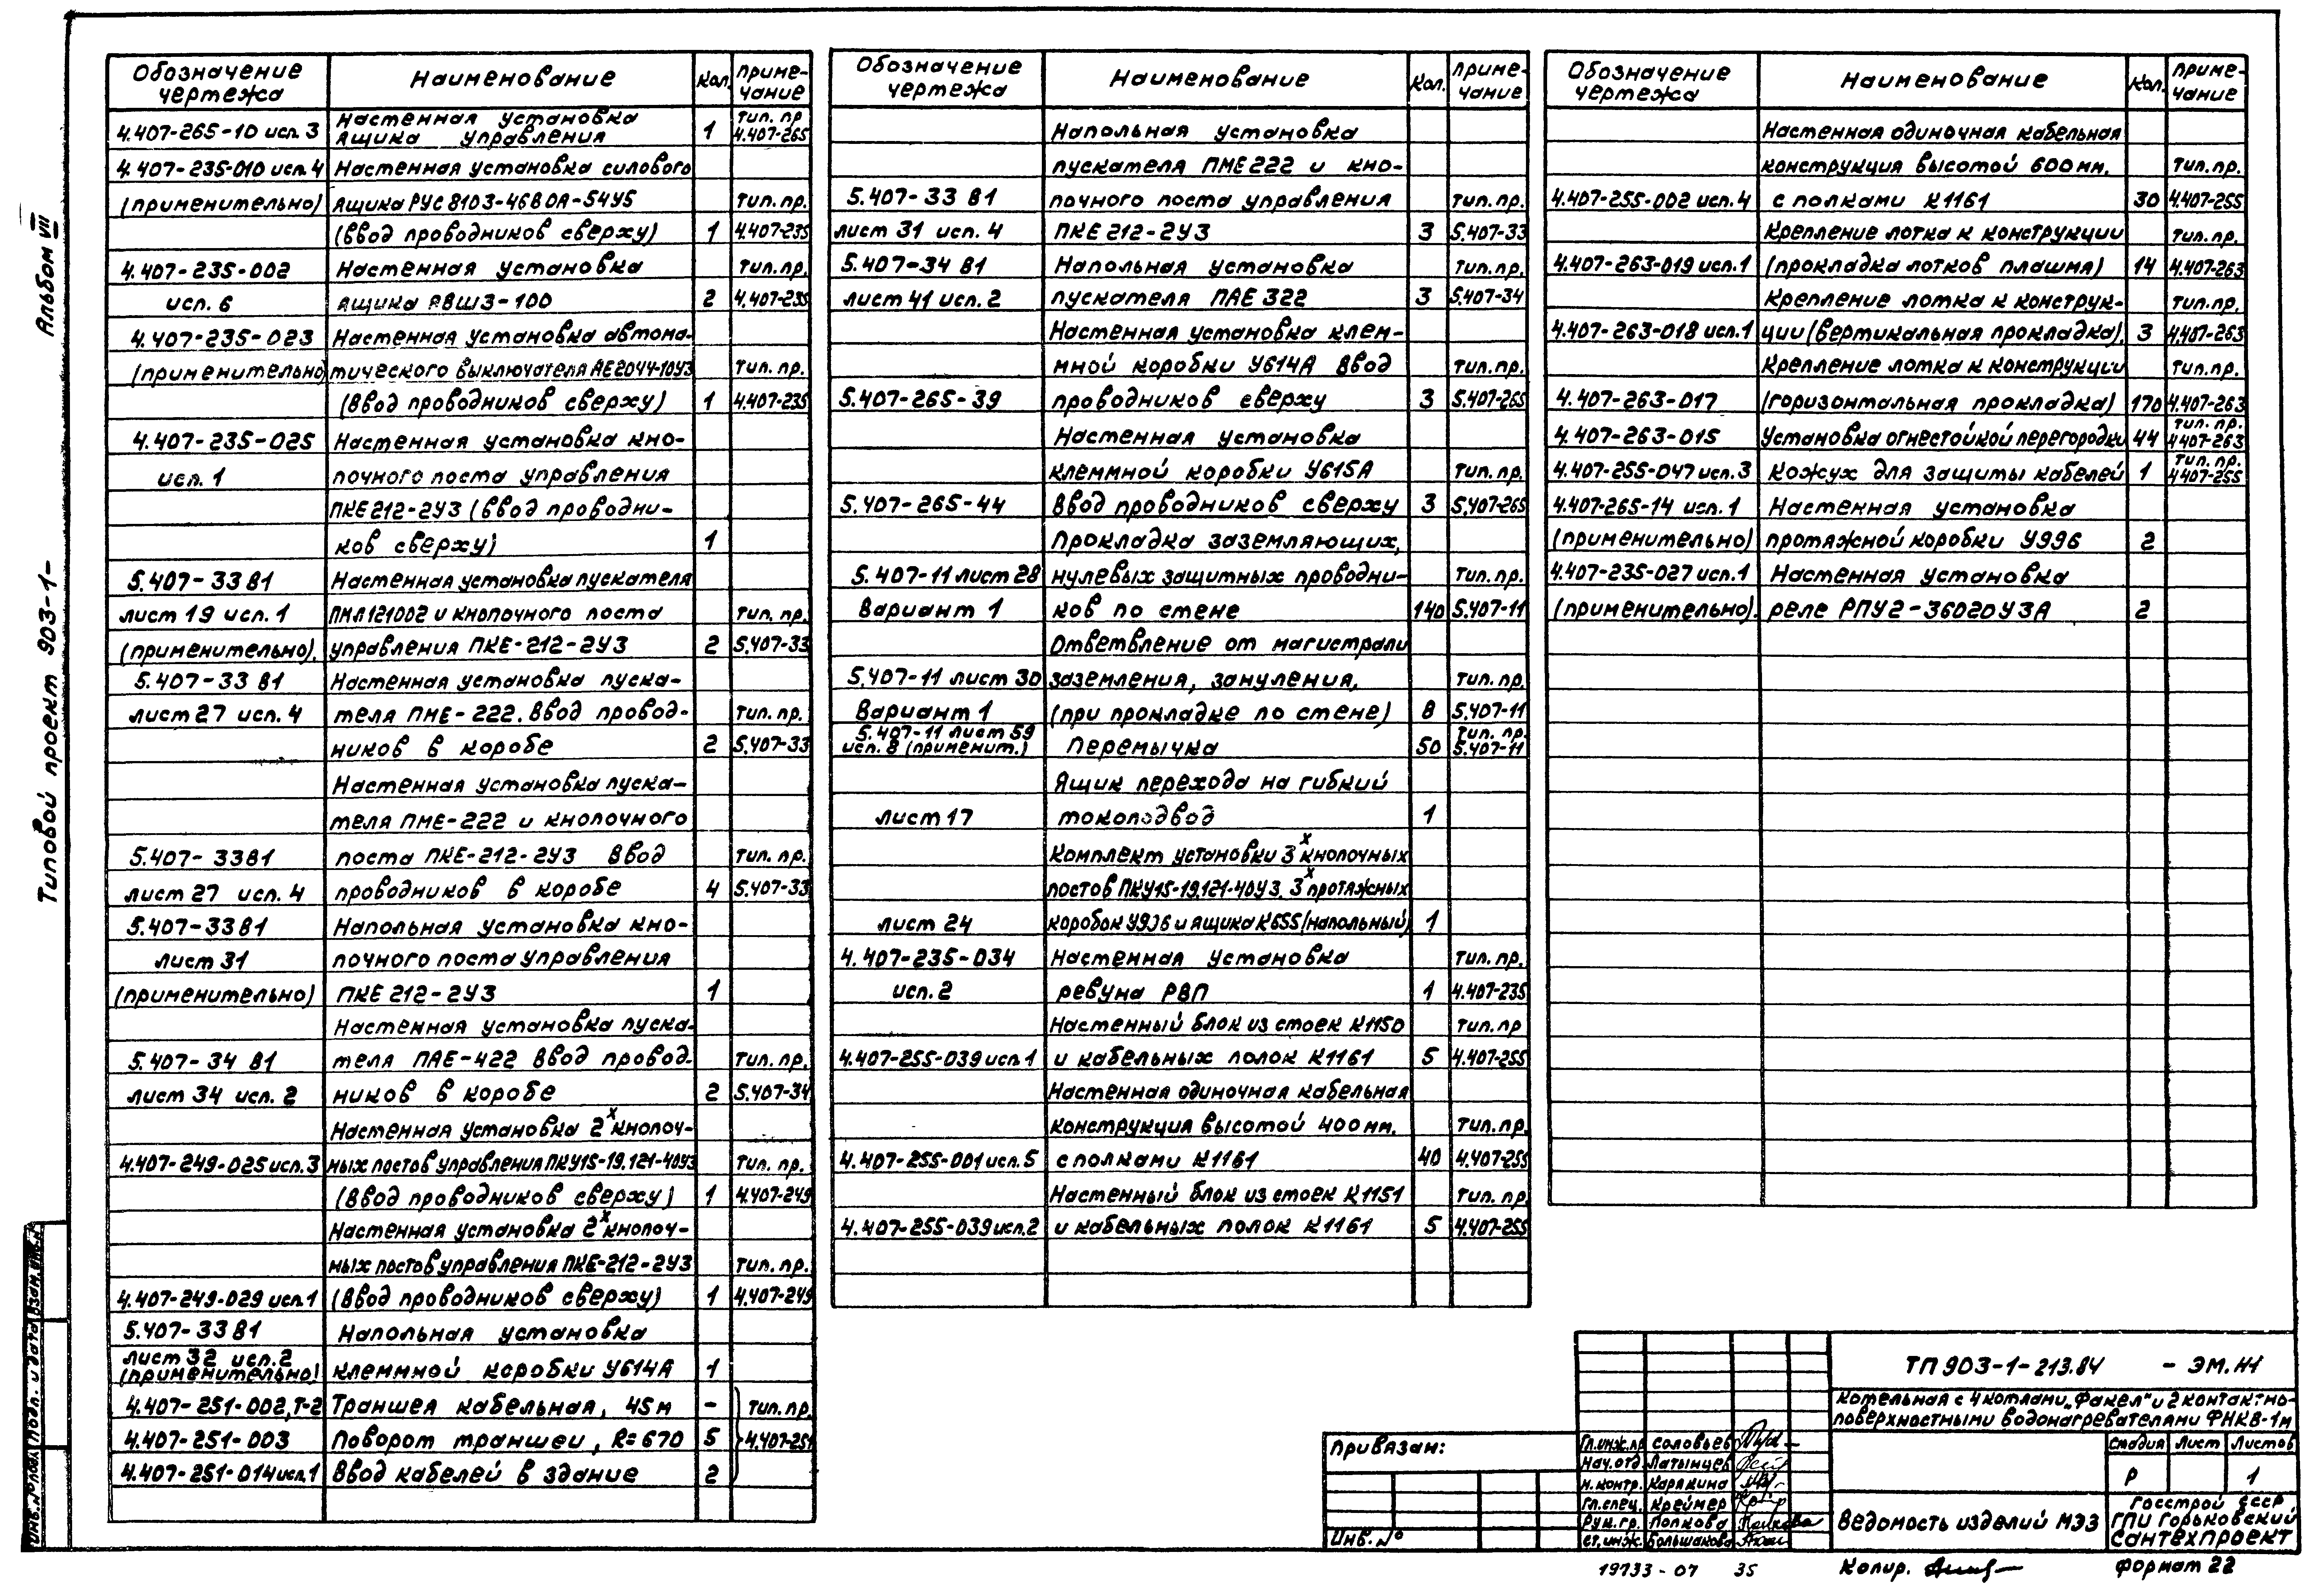 Альбом VII
Типовой проект 903-1-
Обозначение чертежа Наименование Кол. Приме-чание
4.407-265-10 исп. 3 Настенная установка ящика управления 1 Тип. пр 4.407-265
4.407-235-010 исп. 4 Настенная установка силового
(применительно) ящика РУС 8103-46В0А-54У5 Тип. пр.
(ввод проводников сверху) 1 4.407-235
4.407-235-002 Настенная установка Тип. пр.
исп. 6 ящика ЯВШ3-100 2 4.407-235
4.407-235-023 Настенная установка автома-
(применительно) тического выключателя АЕ2044-10У3 Тип. пр.
(ввод проводников сверху) 1 4.407-235
4.407-235-025 Настенная установка кно-
исп. 1 почного поста управления
ПКЕ 212-2У3 (ввод проводни-
ков сверху) 1
5.407-33 В1 Настенная установка пускателя
лист 19 исп. 1 ПМЛ121002 и кнопочного поста Тип. пр.
(применительно). управления ПКЕ-212-2У3 2 5.407-33
5.407-33 В1 Настенная установка пуска-
лист 27 исп. 4 теля ПМЕ-222. Ввод провод- Тип. пр.
ников в коробе 2 5.407-33
Настенная установка пуска-
теля ПМЕ-222 и кнопочного
5.407-33В1 поста ПКЕ-212-2У3 Ввод Тип. пр.
лист 27 исп. 4 проводников в коробе 4 5.407-33
5.407-33В1 Напольная установка кно-
лист 31 почного поста управления
(применительно) ПКЕ 212-2У3 1
Настенная установка пуска-
5.407-34 В1 теля ПАЕ-422 Ввод провод- Тип. пр.
лист 34 исп. 2 ников в коробе 2 5.407-34
Настенная установка 2х кнопоч-
4.407-249-025 исп. 3 ных постов управления ПКУ15-19.121-40У3 Тип. пр.
(ввод проводников сверху) 1 4.407-249
Настенная установка 2х кнопоч-
ных постов управления ПКЕ-212-2У3 Тип. пр.
4.407-249-029 исп. 1 (ввод проводников сверху) 1 4.407-249
5.407-33 В1 Напольная установка
лист 32 исп. 2 (применительно) клеммной коробки У614А 1
4.407-251-002, Т-2 Траншея кабельная, 45м - Тип. пр.
4.407-251-003 Поворот траншеи, R=670 5 4.407-251
4.407-251-014 исп. 1 Ввод кабелей в здание 2
Обозначение чертежа Наименование Кол. Приме-чание
Напольная установка
пускателя ПМЕ 222 и кно-
5.407-33 В1 почного поста управления Тип. пр.
лист 31 исп. 4 ПКЕ 212-2У3 3 5.407-33
5.407-34 В1 Напольная установка Тип. пр.
лист 41 исп. 2 пускателя ПАЕ 322 3 5.407-34
Настенная установка клем-
мной коробки У614А Ввод Тип. пр.
5.407-265-39 проводников сверху 3 5.407-265
Настенная установка
клеммной коробки У615А Тип. пр.
5.407-265-44 Ввод проводников сверху 3 5.407-265
Прокладка заземляющих,
5.407-11 лист 28 нулевых защитных проводни- Тип. пр.
Вариант 1 ков по стене 140 5.407-11
Ответвление от магистрали
5.407-11 лист 30 заземления, зануления, Тип. пр.
Вариант 1 (при прокладке по стене) 8 5.407-11
5.407-11 лист 59 исп. 8 (применит.) Перемычка 50 Тип. пр. 5.407-11
Ящик перехода на гибкий
лист 17 токоподвод 1
Комплект установки 3х кнопочных
постов ПКУ15-19.121-40У3, 3х протяжных
лист 24 коробок У996 и ящика К655 (напольный) 1
4.407-235-034 Настенная установка Тип. пр.
исп. 2 ревуна РВП 1 4.407-235
Настенный блок из стоек К1150 Тип. пр
4.407-255-039 исп. 1 и кабельных полок К1161 5 4.407-255
Настенная одиночная кабельная
конструкция высотой 400 мм. Тип. пр.
4.407-255-001 исп. 5 с полками К1161 40 4.407-255
Настенный блок из стоек К1151 Тип. пр.
4.407-255-039 исп. 2 и кабельных полок К1161 5 4.407-255
Обозначение чертежа Наименование Кол. Приме-чание
Настенная одиночная кабельная
конструкция высотой 600мм. Тип. пр.
4.407-255-002 исп. 4 с полками К1161 30 4.407-255
Крепление лотка к конструкции Тип. пр.
4.407-263-019 исп. 1 (прокладка лотков плашмя) 14 4.407-263
Крепление лотка к конструк- Тип. пр.
4.407-263-018 исп. 1 ции (вертикальная прокладка). 3 4.407-263
Крепление лотка к конструкции Тип. пр.
4.407-263-017 (горизонтальная прокладка) 170 4.407-263
4.407-263-015 Установка огнестойкой перегородки 44 Тип. пр. 4.407-263
4.407-255-047 исп. 3 Кожух для защиты кабелей 1 Тип. пр. 4.407-255
4.407-265-14 исп. 1 Настенная установка
(применительно) протяжной коробки У996 2
4.407-235-027 исп. 1 Настенная установка
(применительно). реле РПУ2-36020У3А 2
Инв. № подл. Подп. и дата Взам. инв. №
Привязан:
Инв. №
Гл. инж. пр Соловьев
Нач. отд. Латынцев
Н. контр. Карякина
Гл. спец. Крейнер
Рук. гр. Попкова
Ст. инж. Большакова
ТП 903-1-213.84 - ЭМ.Н1
Котельная с 4 котлами „Факел" и 2 контактно-
поверхностными водонагревателями ФНКВ-1м
Стадия Лист Листов
Р 1
Ведомость изделий МЭЗ
Госстрой СССР
ГПИ Горьковский
Сантехпроект
19733-07 35
Копир.
Формат 22